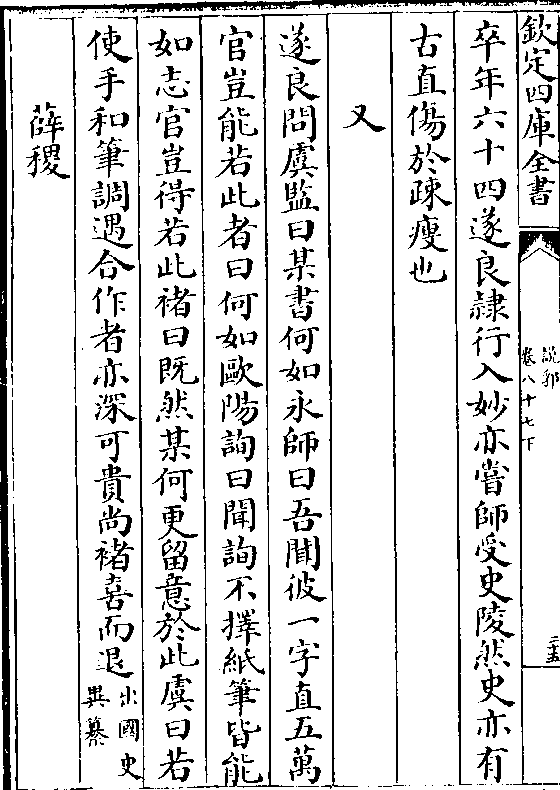 欽定四庫全書
說郛
卷八十七下
三十五
卒年六十四遂良隷行入妙亦嘗師受史陵然史亦有
古直傷於疎瘦也
又
遂良問虞監曰某書何如永師曰吾聞彼一字直五萬
官豈能若此者曰何如歐陽詢曰聞詢不擇紙筆皆能
如志官豈得若此褚曰既然某何更留意於此虞曰若
使手和筆調遇合作者亦深可貴尚褚喜而退出國史
異纂
薛稷